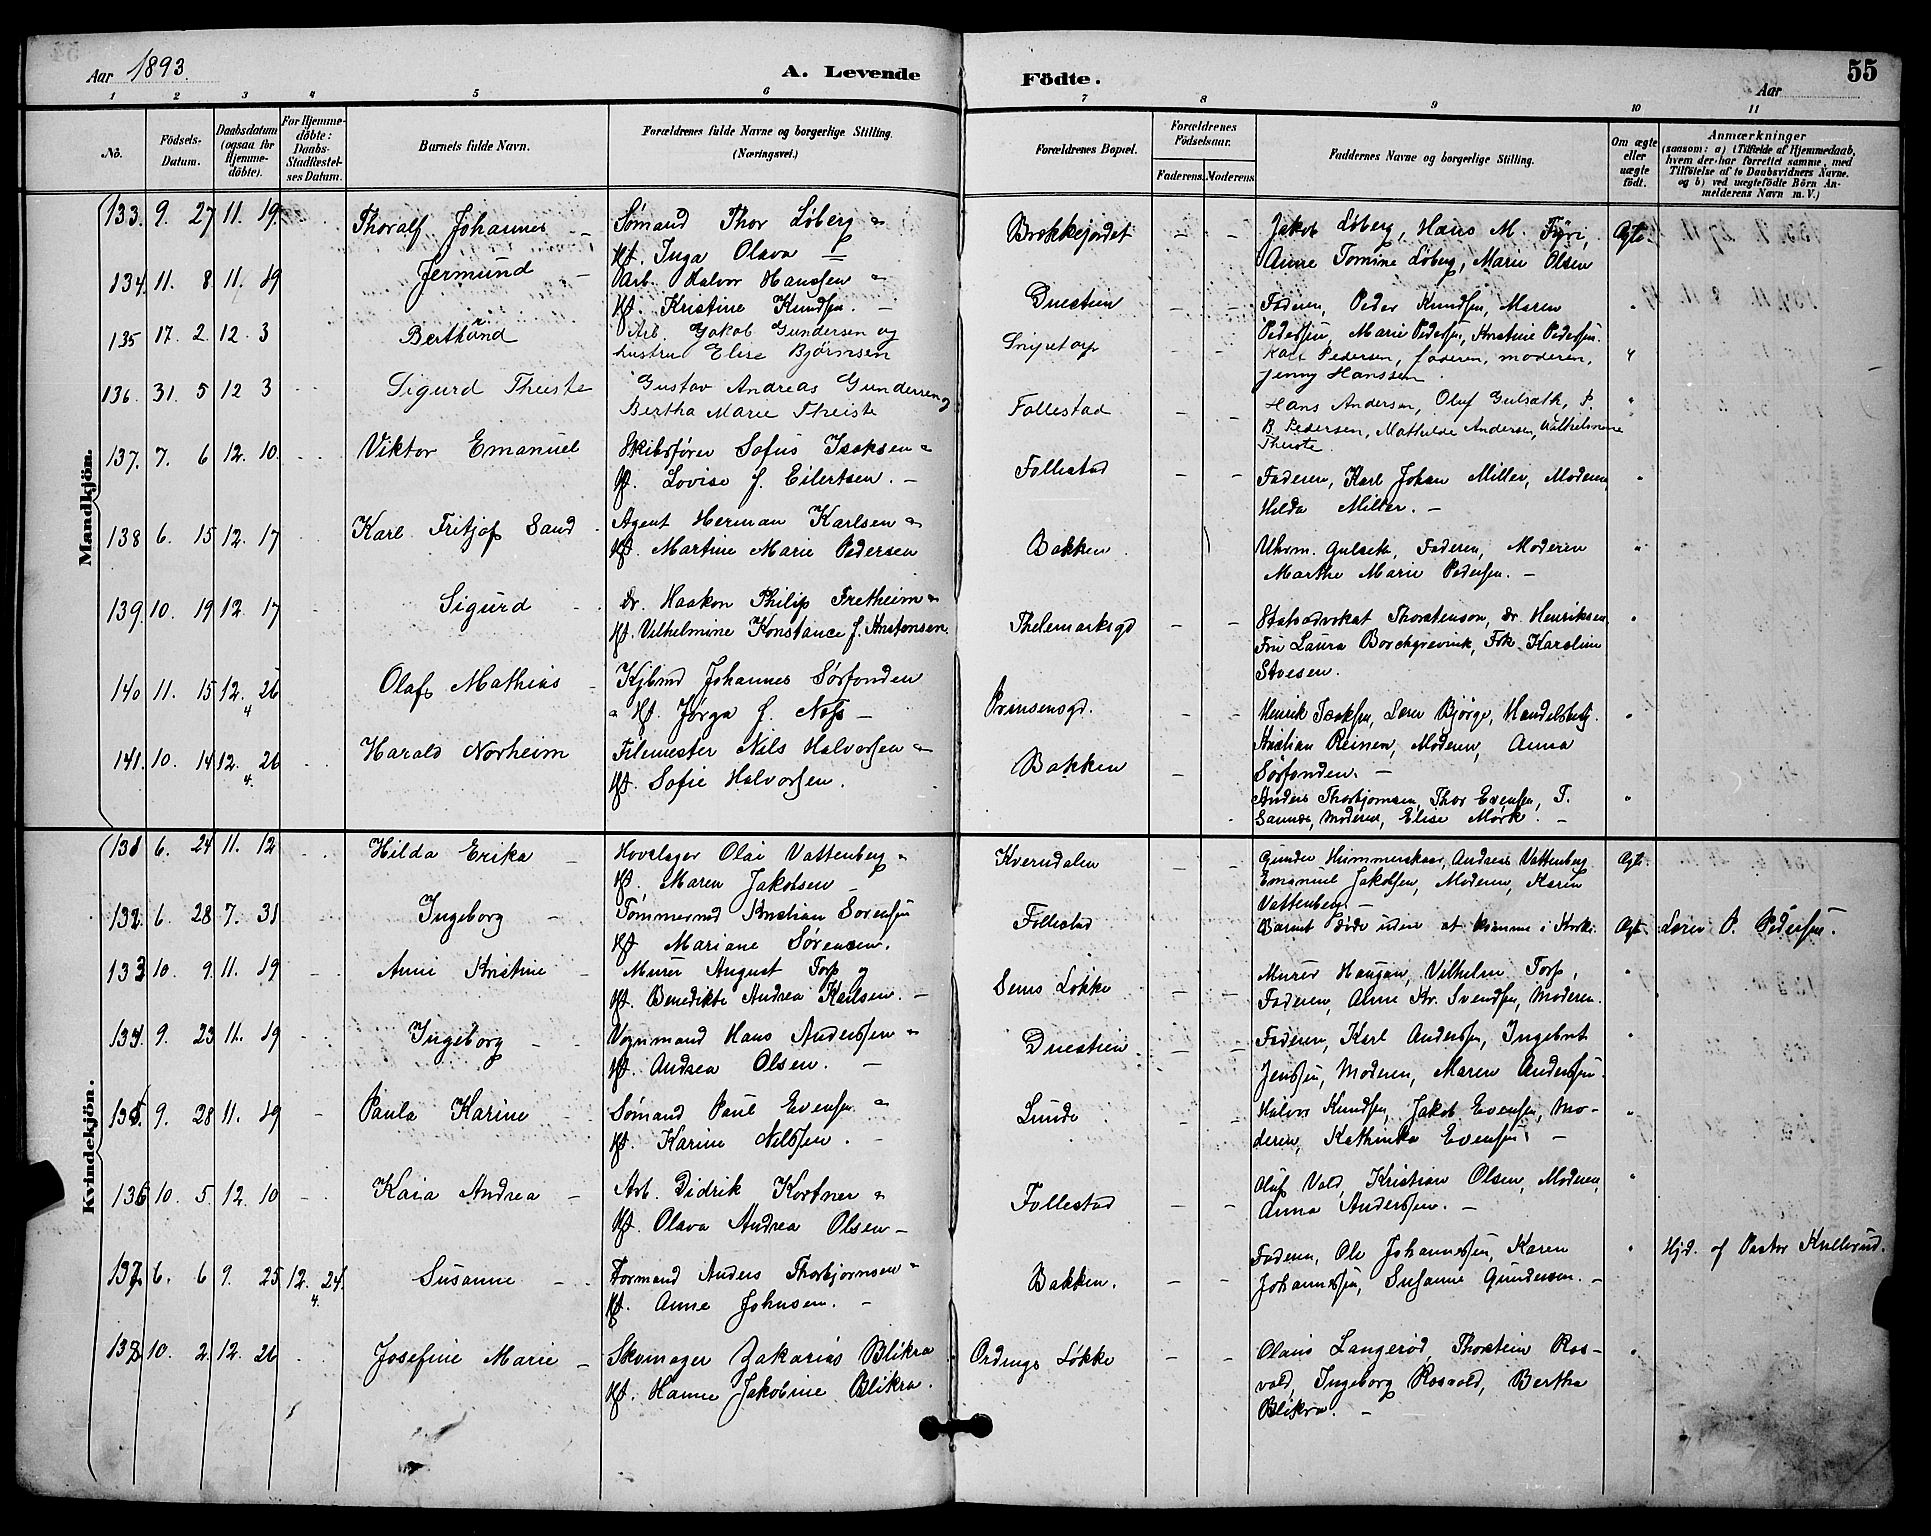 Aar 1893. A. Levende Födte. Aar 55
1 2 3 4 5 6 7 8 9 10 11
No.
Födsels-Datum.
Daabsdatum (ogsaa for Hjemme-döbte).
For Hjemme-döbte: Daabs-Stadfæstel-ses Datum.
Barnets fulde Navn.
Forældrenes fulde Navne og borgerlige Stilling.
(Næringsvei.)
Forældrenes Bopæl.
Forældrenes Födselsaar.
Faderens. Moderens.
Faddernes Navne og borgerlige Stilling.
Om ægte eller uægte födt.
Anmærkninger
(saasom: a) i Tilfælde af Hjemmedaab,
hvem der har forrettet samme, med
Tilföielse af to Daabsvidners Navne.
og b) ved uægtefödte Börn An-
melderens Navn m. V.)
Mandkjön.
133. 9. 27 11. 19. Thoralf Johannes – Sømand Thor Løberg & Brekkejordet – – Jakob Løberg, Hans M. Fyri, Ægte.
Hf. Inga Olava = Anne Tomine Løberg, Marie Olsen
134. 11. 8 11. 19 Jermund – Arb. Halvor Hanssen &
Hf. Kristine Knudsen. – Duestien – – Faderen, Peder Knudsen, Maren "
Pedersen, Marie Pedersen, Kristine Pedersen.
135 17. 2. 12. 3 Berthrand Arb Jakob Gundersen og
hustru Elise Bjørnsen Snipetorp – – Karl Pedersen, faderen, moderen, "
Jenny Hanssen.
136. 31. 5 12 3 Sigurd Theiste Gustav Andreas Gundersen og
Bertha Marie Theiste Follestad – – Hans Andersen, Oluf Gulseth, P. "
B. Pedersen, Mathilde Andersen, Wilhelmine
Theiste.
137. 7. 6 12. 10. Viktor Emanuel Skibsfører Sofus Isaksen &
Hf. Lovise f. Eilertsen. – Follestad – – Faderen, Karl Johan Miller, Moderen, "
Hilda Miller. –
138 6. 15 12. 17 Karl Fritjof Sand Agent Herman Karlsen &
Hf. Martine Marie Pedersen Bakken Uhrm. Gulseth, Faderen, Moderen "
Marthe Marie Pedersen. –
139. 10. 19 12. 17 Sigurd Dr. Haakon Philip Fretheim &
Hf. Vilhelmine Konstance f. Antonsen. Thelemarksgd – – Statsadvokat Thorstenson, Dr. Henriksen "
Fru Laura Borchgrevink, Frk. Karoline
Stoesen.
140 11. 15 12. 26 Olaf Mathias – Kjbmd Johannes Sørfonden
4 & Hf. Jørga f. Næss – Prinsensgd. – – Henrik Isaksen, Lærer Bjørge, Handelsbetj. "
Kristian Reinen, Moderen, Anna
Sørfonden. –
141. 10. 14 12. 26 Harald Norheim Filemester Nils Halvorsen &
4. Hf. Sofie Halvorsen. Bakken – Anders Thorbjørnsen, Thor Evensen, T. "
Saunde, Moderen, Elise Mørk. –
Kvindekjön.
131 6. 24 11. 12 Hilda Erika – Hovslager Olai Vattenberg & Kverndalen – – Gunder Hummerskaar, Andreas Vattenberg Ægte.
Hf. Maren Jakobsen – Emanuel Jakobsen, Moderen, Karen
Vattenberg –
132. 6. 28 7. 31 Ingeborg – Tømmermd Kristian Sørensen
Hf. Mariane Sørensen. Follestad Barnet Døde uden at komme i Kirke. Ægt. Lærer P. Pedersen.
133 10. 9. 11. 19 Anne Kristine – Murer August Torp &
Hf. Benedikte Andrea Karlsen. – Sems Løkke – – Murer Haugan, Vilhelm Torp, "
Faderen, Anne Kr. Svendsen, Moderen.
134. 9. 23 11. 19 Ingeborg – – Vognmand Hans Anderssen &
Hf. Andrea Olsen. – Duestien – – Faderen, Karl Anderssen, Ingebret "
Jenssen, Moderen, Maren Anderssen.
135. 9. 28 11. 19 – Paula Karine – Sømand Paul Evensen &
Hf. Karine Nilssen. – Lunde – – Halvor Knudsen, Jakob Evensen, Mo- "
deren, Kathinka Evensen. –
136 10. 5 12. 10 – Kaia Andrea – Arb. Didrik Kortner &
Hf. Olava Andrea Olsen – Follestad – – Oluf Vold, Kristian Olsen, Moderen, "
Anna Anderssen. –
137. 6. 6 9. 25 12. 24. Susanne – – Formand Anders Thorbjørnsen &
4. Hf. Anne Johnsen. – Bakken. – – Faderen, Ole Johannessen, Karen " Hjd. af Pastor Kullerud.
Johannessen, Susanne Gundersen. –
138 10. 2 12. 26 Josefine Marie – Skomager Zakarias Blikra
Hf. Hanne Jakobine Blikra. Ordings Løkke – – Olaus Langerød, Thorstein Ros- "
vold, Ingeborg Rosvold, Bertha
Blikra. –